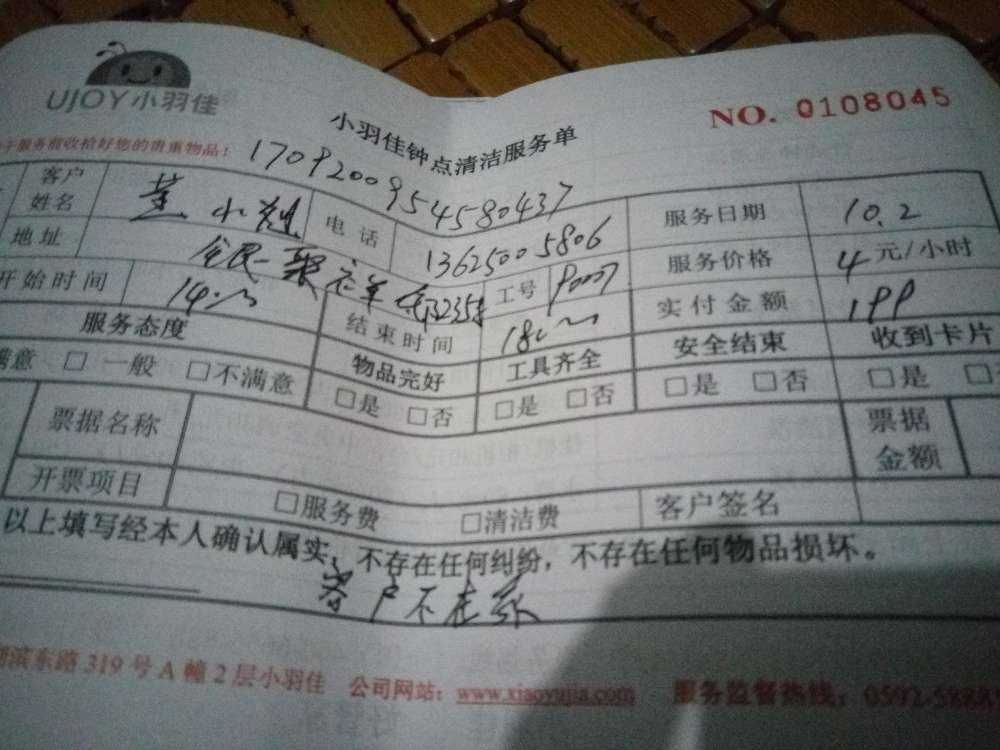 UJOY小羽佳
小羽佳钟点清洁服务单
NO. 0108045
服务前收拾好您的贵重物品！
17092009954580437
客户姓名 小 电话 13625005806 服务日期 10.2
地址 工号 P0007 服务价格 4 元/小时
开始时间 14: 结束时间 18: 实付金额 199
服务态度 物品完好 工具齐全 安全结束 收到卡片
满意 □ 一般 □不满意 □是 □否 □是 □否 □是 □否 □是
票据名称 票据金额
开票项目 □服务费 □清洁费 客户签名
以上填写经本人确认属实，不存在任何纠纷，不存在任何物品损坏。
客户不在家
滨东路 319 号 A 幢 2 层小羽佳 公司网站：www.xiaoyujia.com 服务监督热线：0592-5888